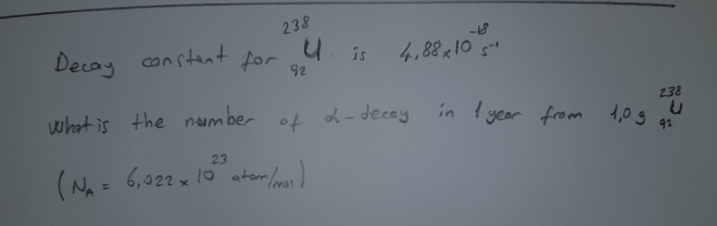 Decay constant for ²³⁸₉₂U is 4,88x10⁻¹⁸ s⁻¹
What is the number of α-decay in 1 year from 1,0 g ²³⁸₉₂U
(N_A = 6,022 x 10²³ atom/mol)